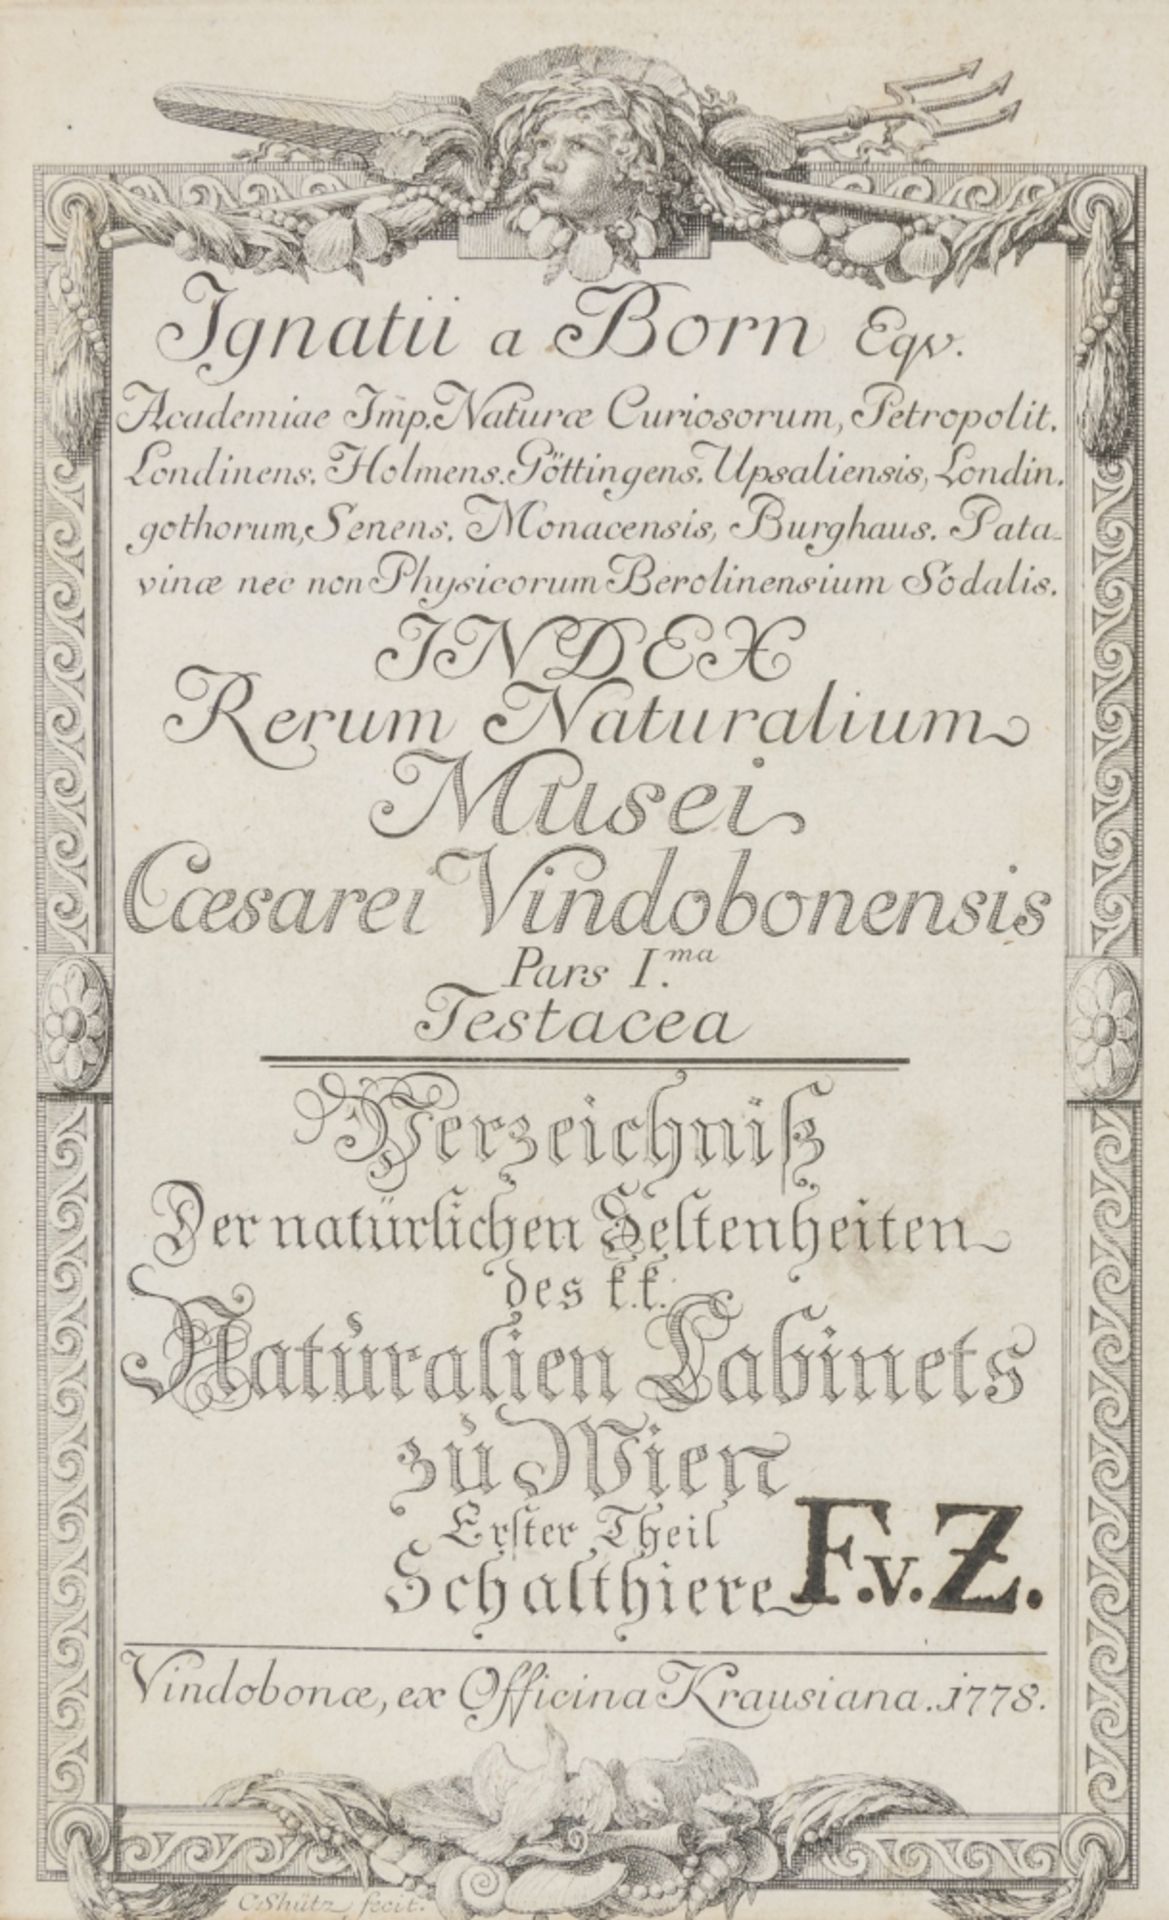 Ignatii a Born Eqv.
Academiae Imp. Naturæ Curiosorum, Petropolit.
Londinens. Holmens. Göttingens. Upsaliensis, Londin.
gothorum, Senens. Monacensis, Burghaus. Pata-
vinæ nec non Physicorum Berolinensium Sodalis.
INDEX
Rerum Naturalium
Musei
Cæsarei Vindobonensis
Pars I.ma
Testacea
Verzeichniß
Der natürlichen Seltenheiten
des k.k.
Naturalien Cabinets
zu Wien
Erster Theil
Schalthiere
F.v.Z.
Vindobonæ, ex Officina Krausiana. 1778.
C. Shütz fecit.